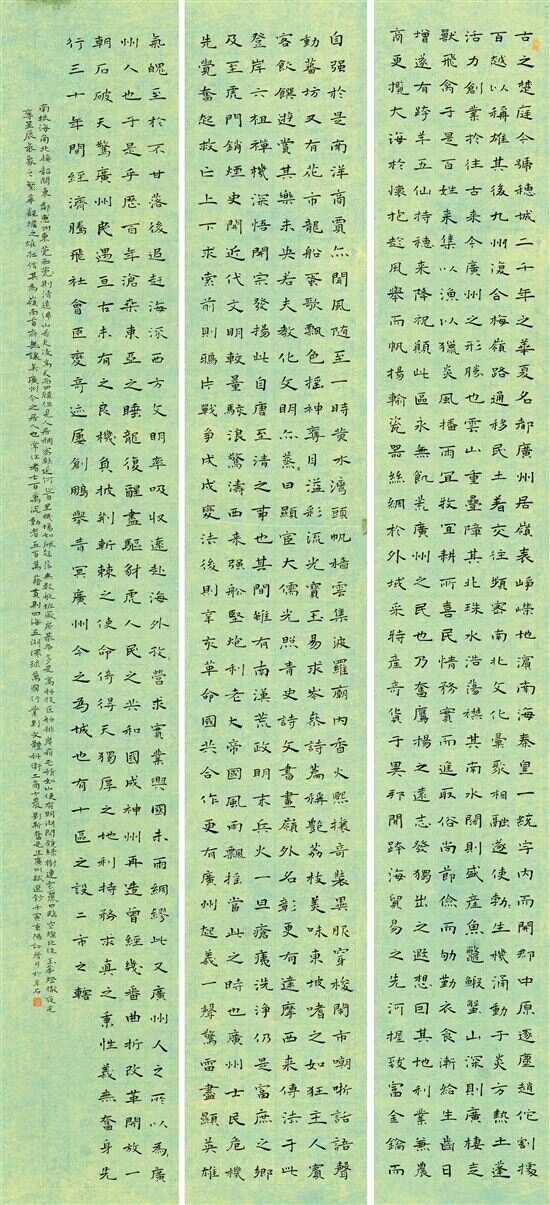 古之楚庭今號穗城二千年之華夏名都廣州居嶺表崢嶸地濱南海秦皇一統宇內而開郡中原逐塵趙佗割據
百越以稱雄其後九州復合梅嶺路通移民土著交往頻密南北文化彙聚相融遂使勃生機涌動于炎方熱土蓬
活力創業於往古來今廣州之形勝也雲山重疊障其北珠水浩蕩襟其南水闊則盛產魚鼈鰕蟹山深則廣棲走
獸飛禽于是百姓來集以漁以獵炎風播雨宜牧宜耕所喜民情務實而進取俗尚節儉而劬勤衣食漸給生齒日
增遂有跨羊五仙持穗來降祝願此區永無飢荒廣州之民也乃奮鷹揚之遠志發獨出之遐想因其地利業無農
商更攬大海於懷抱趁風舉而帆揚輸瓷器絲綢於外域采特產奇貨于異邦開跨海貿易之先河握致富金鑰而
自强於是南洋商賈亦聞風隨至一時黄水灣頭帆檣雲集波羅廟內香火熙攘奇裝異服穿梭鬧市嘲哳話語聲
動蕃坊又有花市龍船蜑歌飄色摇神奪目溢彩流光寶玉易求詩篇稱艷荔枝美味東坡嗜之如狂主人賓
客飲饌遊賞其樂未央若夫教化文明亦蒸日顯宦大儒光照青史詩文書畫嶺外名彰更有達摩西來傳法于此
登岸六祖禪機深悟開宗發揚此自唐至清之事也其間雖有南漢荒政明末兵火一旦瘡痍洗淨仍是富庶之鄉
及至虎門銷煙史開近代文明較量浪驚濤西來强船堅炮利老大帝國風雨飄摇當此之時也廣州士民危機
先覺奮起救亡上下求索前則鴉片戰爭戊戌變法後則辛亥革命國共合作更有廣州起義一聲驚雷盡顯英雄
氣魄至於不甘落後追赶海深西方文明率吸收遠赴海外孜營求實業興國未雨綢繆此又廣州人之所以為廣
州人也于是乎歷百年滄桑東亞之睡龍復醒盡驅豺虎人民之共和國成神州再造曾經幾番曲折改革開放一
朝石破天驚廣州民遇亘古未有之良機負披荆斬棘之使命倚得天獨厚之地利持務求真之秉性義無奮身先
行三十年間經濟騰飛社會巨變奇迹屢創鵬舉青冥廣州今之為城也有十區之設二市之轄